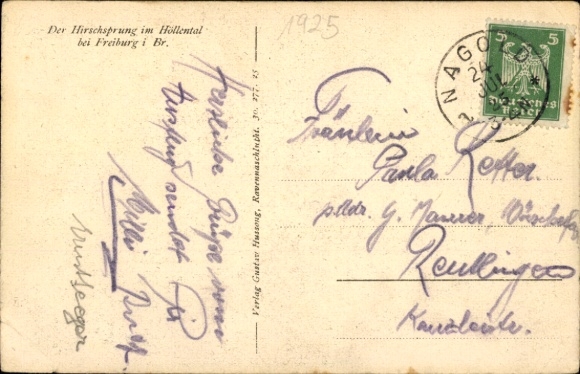 Der Hirschsprung im Höllental
bei Freiburg i Br.
1925
Herzliche Grüße vom
Ausflug sendet Dir
Willi
Verlag Gustav Hussong, Ravennaschlucht. 30. 277. 25
NAGOLD
5 5
Deutsches
Reich
Fräulein
Paula
G. Maurer,
Reutlingen
Kanzleistr.